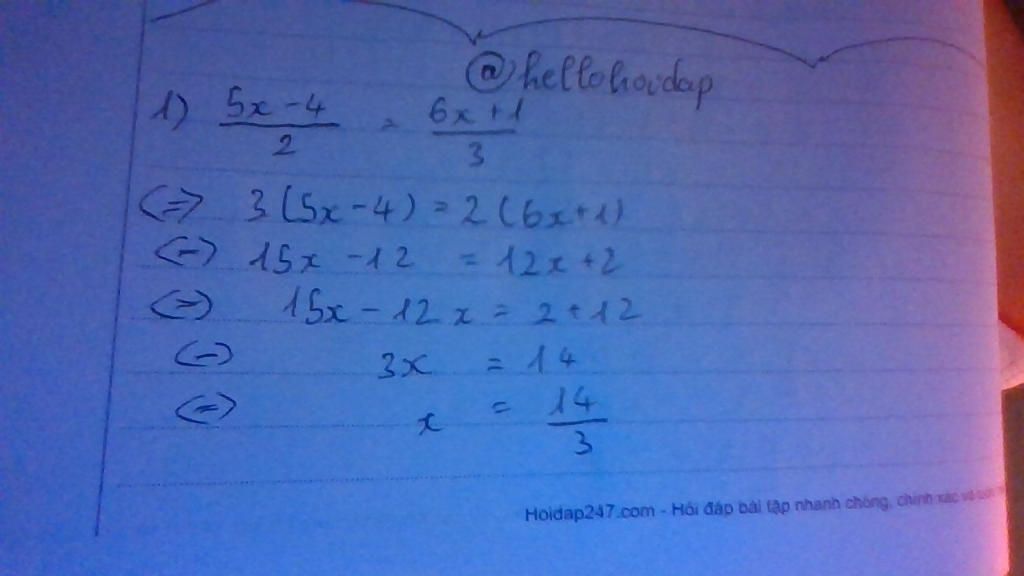 @hellohoidap
1) (5x - 4)/2 = (6x + 1)/3
(=) 3(5x - 4) = 2(6x + 1)
(=) 15x - 12 = 12x + 2
(=) 15x - 12x = 2 + 12
(=) 3x = 14
(=) x = 14/3
Hoidap247.com - Hỏi đáp bài tập nhanh chóng, chính xác và